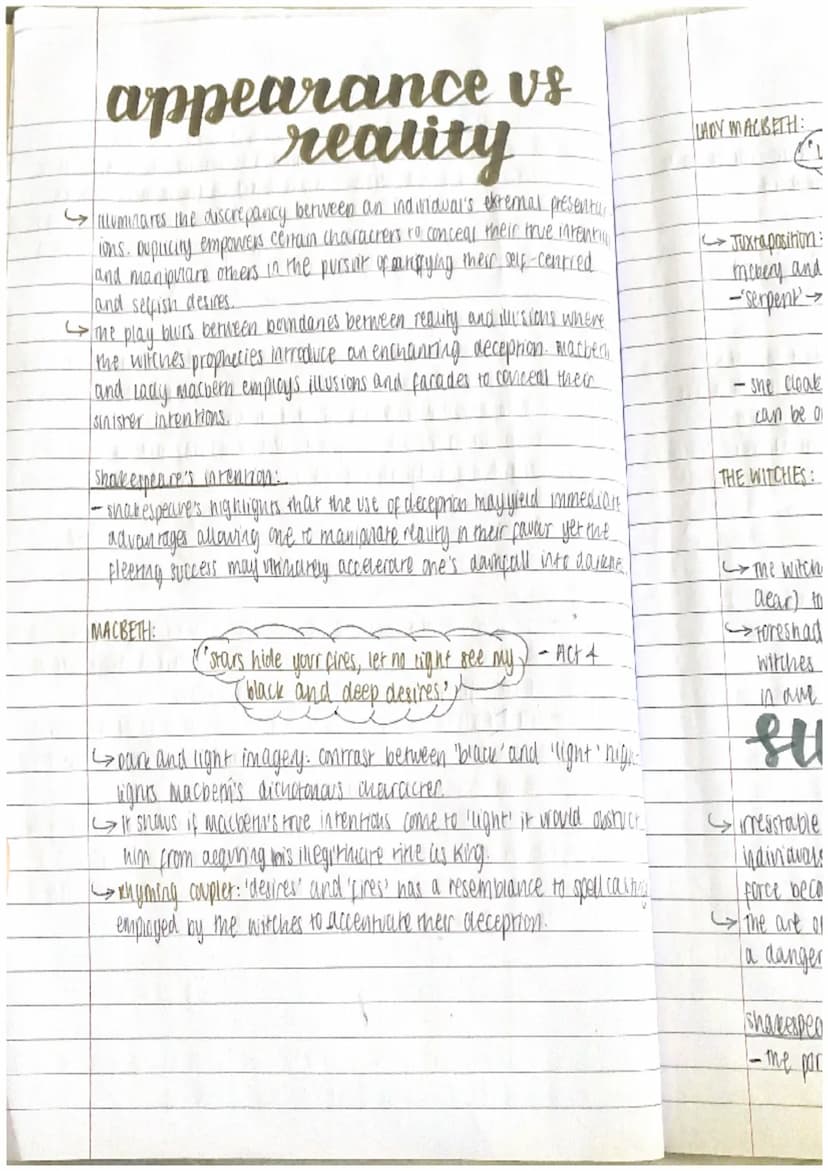 appearance vs
reality
↳ illuminates the discrepancy between an individual's external presentat
ions. Duplicity empowers certain characters to conceal their true intentions
and manipulate others in the pursuit of gratifying their self-centred
and selfish desires.
↳ The play blurs between boundaries between reality and illusions where
the witches prophecies introduce an enchanting deception. Macbeth
and Lady Macbeth employs illusions and facades to conceal their
sinister intentions.
Shakespeare's intention:
- Shakespeare's highlights that the use of deception may yield immediate
advantages allowing one to manipulate reality in their favour yet the
fleeting success may ultimately accelerate one's downfall into
MACBETH:
'stars hide your fires, let no light see my - Act 4
black and deep desires.'
↳ Dark and light imagery: contrast between 'black' and 'light' high-
lights Macbeth's dichotonous character.
↳ It shows if Macbeth's true intentions come to 'light' it would obstruct
him from acquiring his illegitimate title as King.
↳ Rhyming couplet: 'desires' and 'fires' has a resemblance to spell casting
employed by the witches to accentuate their deception.
LADY MACBETH:
↳ Juxtaposition:
- 'serpent' →
- she cloak
can be
THE WITCHES:
↳ The witch
↳ Foreshad
witches
in
su
↳ irresistable
individuals
force beco
↳ The art of
a danger
Shakespea
- The